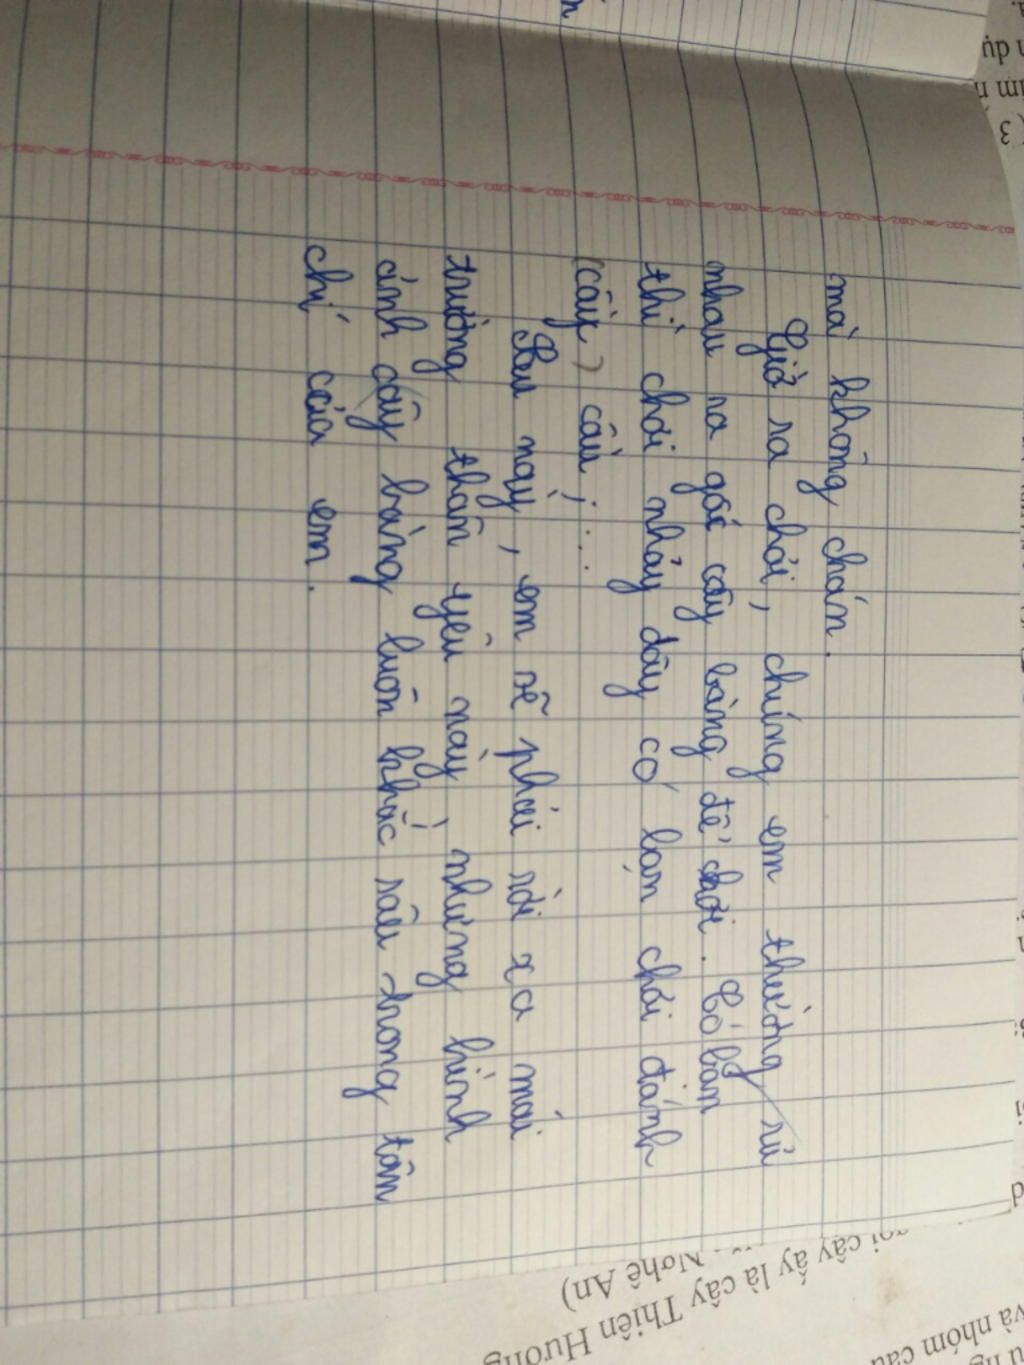 mà không chán.
Giờ ra chơi, chúng em thường rủ
nhau ra gốc cây bàng để chơi. Có bạn
thì chơi nhảy dây có bạn chơi đánh
(cầu) cầu;...
Sau này, em sẽ phải rời xa mái
trường thân yêu này, nhưng hình
ảnh cây bàng luôn khắc sâu trong tâm
chí của em.
gọi cây ấy là cây Thiên Hương
Nghệ An)
và nhóm